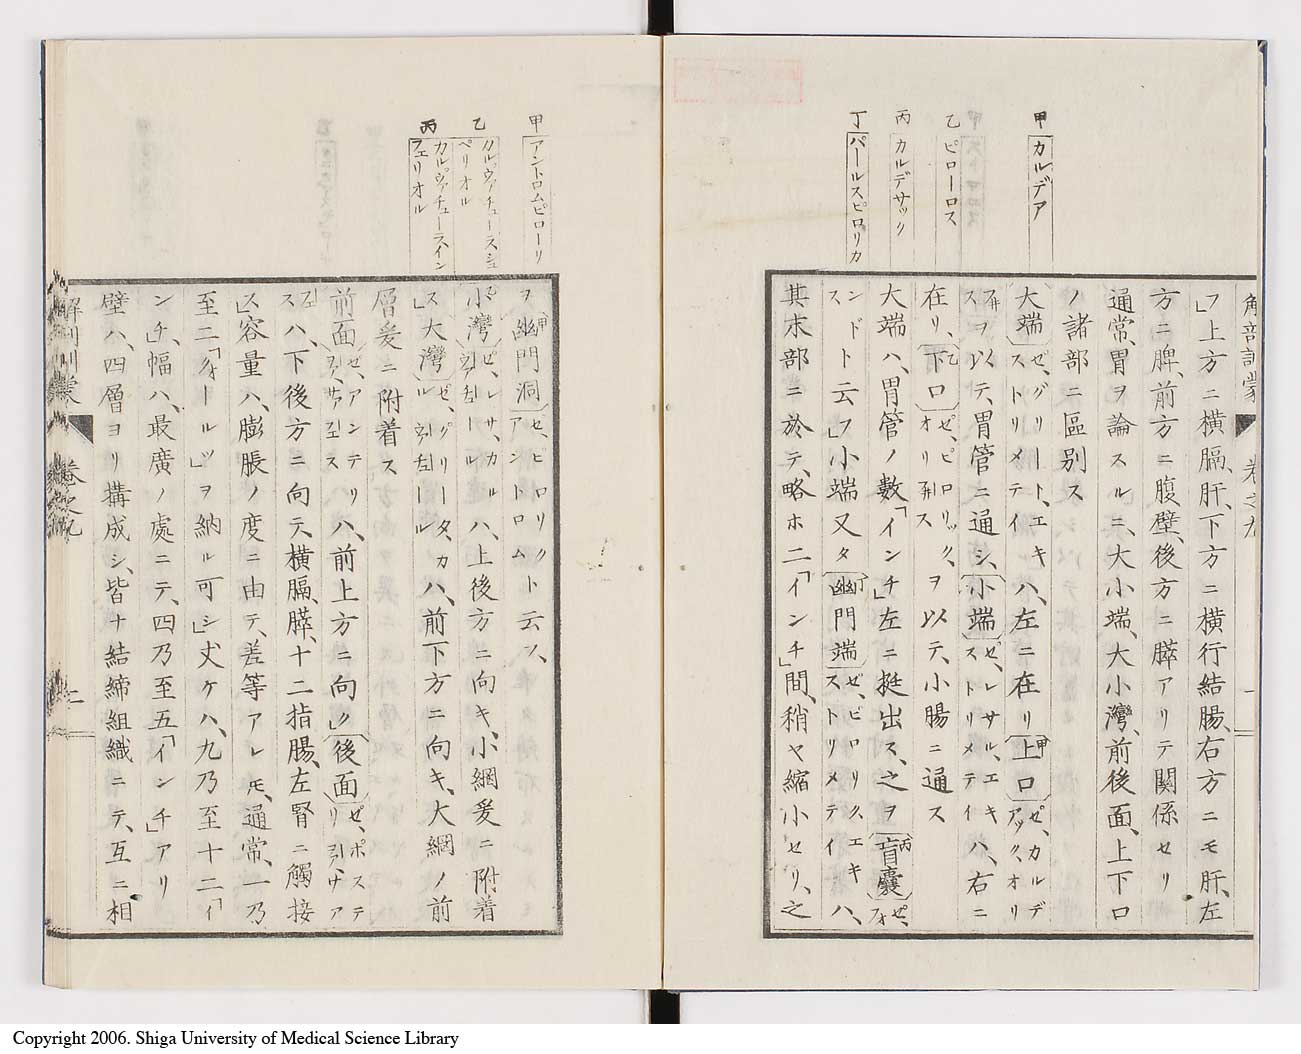 甲 カルデア
乙 ピローロス
丙 カルデサック
丁 パールスピロリカ
解剖訓蒙 巻之九
フ上方ニ横膈、肝、下方ニ横行結腸、右方ニモ肝、左
方ニ脾、前方ニ腹壁、後方ニ膵アリテ関係セリ
通常、胃ヲ論スルニ、大小端、大小湾、前後面、上下口
ノ諸部ニ区別ス
大端 ゼ、グリート、エキストリメテイ ハ、左ニ在リ 上口 ゼ、カルデアック、オリフ井ス
ヲ以テ、胃管ニ通シ、小端 ゼ、レサル、エキストリメテイ ハ、右ニ
在リ、下口 ゼ、ピロリック、オリフ井ス ヲ以テ、小腸ニ通ス
大端ハ、胃管ノ數「インチ」左ニ挺出ス、之ヲ 盲嚢 ゼ、フォンド
ト云フ」小端又タ 幽門端 ゼ、ピロリク、エキストリメテイ ハ、
其末部ニ於テ、略ホ二「インチ」間、稍ヤ縮小セリ、之
甲 アントロムピローリ
乙 カルヴァチューラスシュペリオル
丙 カルヴァチューラインフェリオル
ヲ 幽門洞 ゼ、ピロリク、アントロム ト云フ、
小湾 ゼ、レサ、カルヴァチュール ハ、上後方ニ向キ、小網爰ニ附着
ス」大湾 ゼ、グリータ、カルヴァチュール ハ、前下方ニ向キ、大網ノ前
層爰ニ附着ス
前面 ゼ、アンテリヲル、サアフェース ハ、前上方ニ向ひ 後面 ゼ、ポステリヲル、サアフェース
ハ、下後方ニ向テ、横膈、膵、十二指腸、左腎ニ觸接
ス」容量ハ、膨脹ノ度ニ由テ、差等アレ𪜈、通常、一乃
至二「クォールツ」ヲ納ル可シ」丈ケハ、九乃至十二「イ
ンチ」幅ハ、最廣ノ處ニテ、四乃至五「インチ」アリ
壁ハ、四層ヨリ構成シ、皆ナ結締組織ニテ、互ニ相
巻之九
Copyright 2006. Shiga University of Medical Science Library